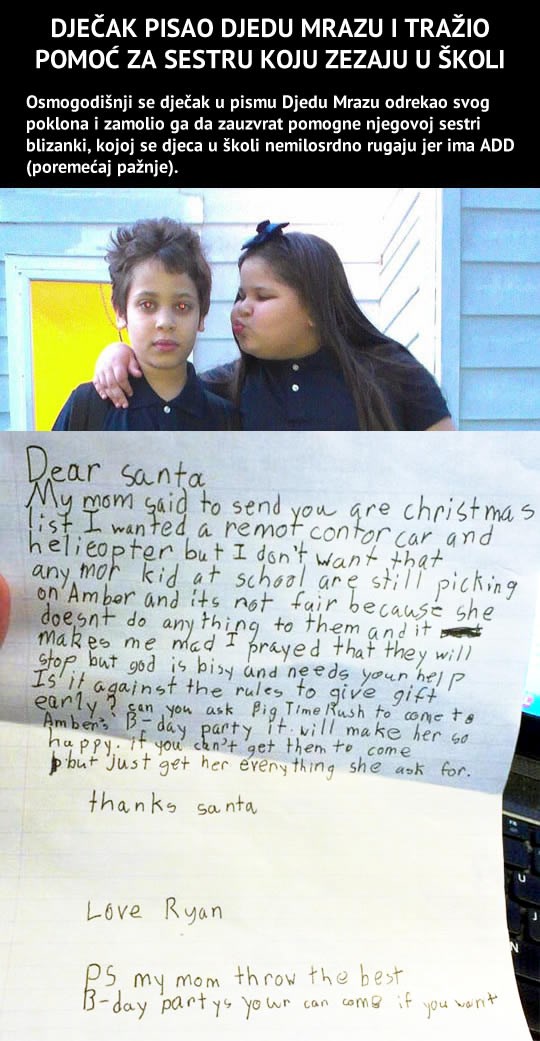 DJEČAK PISAO DJEDU MRAZU I TRAŽIO
POMOĆ ZA SESTRU KOJU ZEZAJU U ŠKOLI
Osmogodišnji se dječak u pismu Djedu Mrazu odrekao svog
poklona i zamolio ga da zauzvrat pomogne njegovoj sestri
blizanki, kojoj se djeca u školi nemilosrdno rugaju jer ima ADD
(poremećaj pažnje).
Dear santa
My mom said to send you are christmas
list I wanted a remot contor car and
helicopter but I don't want that
any mor kid at school are still picking
on Amber and its not fair because she
doesnt do any thing to them and it
makes me mad I prayed that they will
stop but god is bisy and needs your help
Is it against the rules to give gift
early? can you ask Big Time Rush to come to
Amber's B-day party it will make her so
happy. if you can't get them to come
but just get her everything she ask for.
thanks santa
Love Ryan
PS my mom throw the best
B-day partys your can come if you want